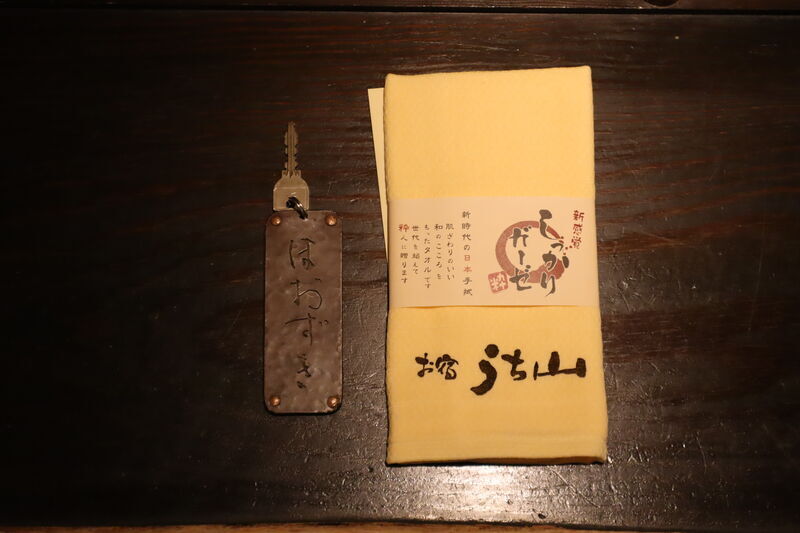 ほおずき
新感覚
しっかり
ガーゼ
粋
新時代の日本手拭
肌ざわりのいい
和のこころを
もったタオルです
世代を超えて
粋人に贈ります
お宿 うち山